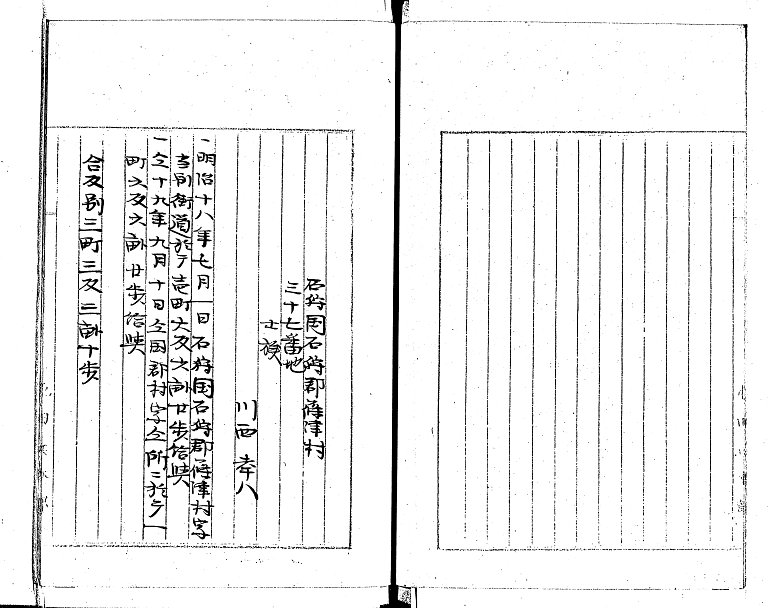 石狩国石狩郡篠津村
三十七番地
士族
川西幸八
一明治十八年七月一日石狩国石狩郡篠津村字
当別街道於テ壱町六反六畝廿歩給與
一仝十九年九月十日仝国郡村字仝所ニ於テ一
町六反六畝廿歩給與
合反別三町三反三畝十歩